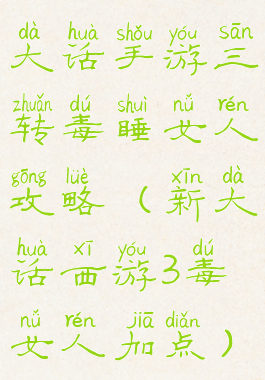 dà huà shǒu yóu sān
大话手游三
zhuǎn dú shuì nǚ rén
转毒睡女人
gōng lüè xīn dà
攻略（新大
huà xī yóu dú
话西游3毒
nǚ rén jiā diǎn
女人加点）